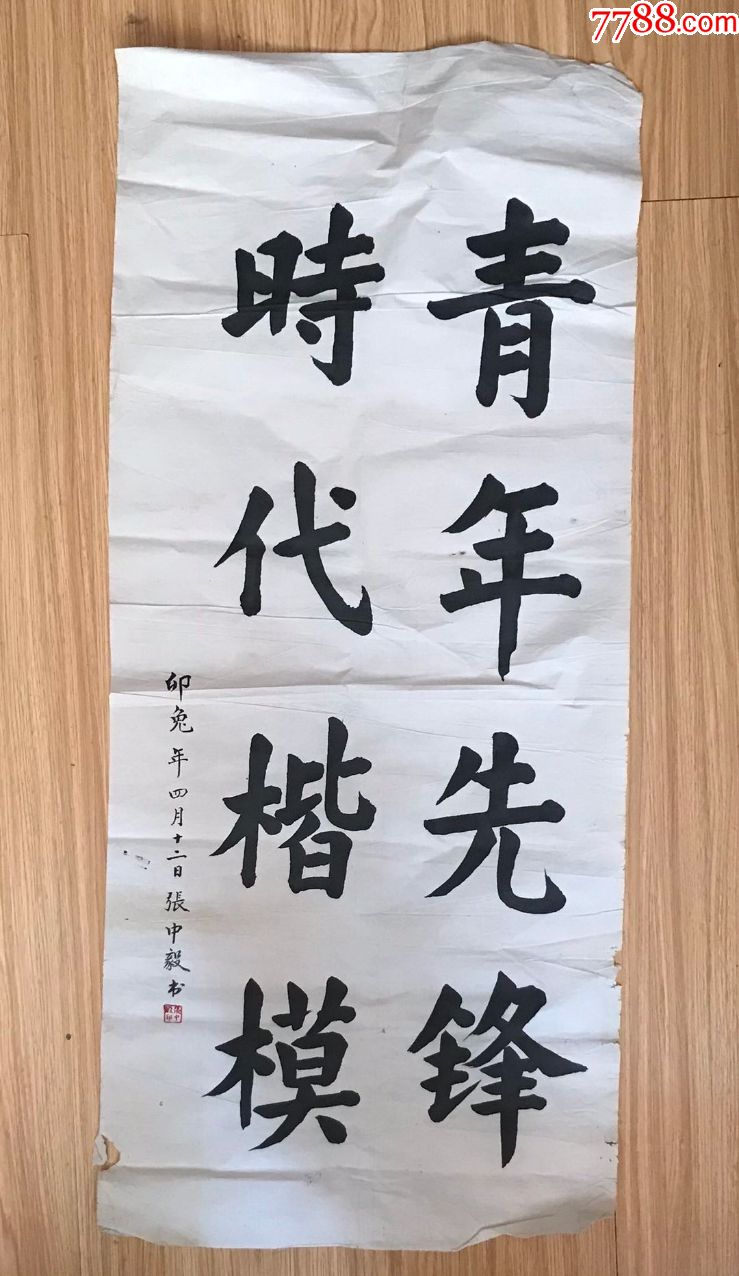 7788.com
青年先锋
時代楷模
卯兔年四月十二日張中毅书